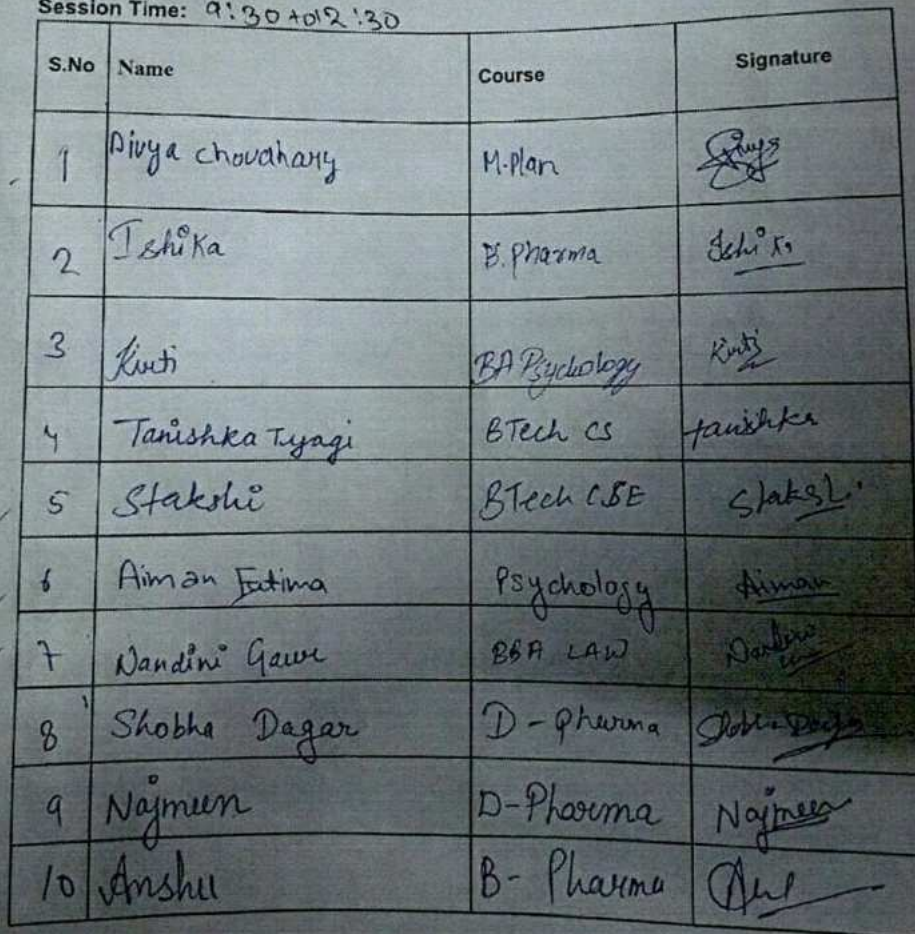 Session Time: 9:30 to 12:30
S.No Name Course Signature
1 Divya Choudhary M.Plan
2 Ishika B.Pharma Ishika
3 Kirti BA Psychology Kirti
4 Tanishka Tyagi BTech CS tanishka
5 Stakshi BTech CSE Stakshi
6 Aiman Fatima Psychology Aiman
7 Nandini Gaur BBA LAW Nandini
8 Shobha Dagar D-Pharma Shobha Dagar
9 Najmeen D-Pharma Najmeen
10 Anshu B-Pharma